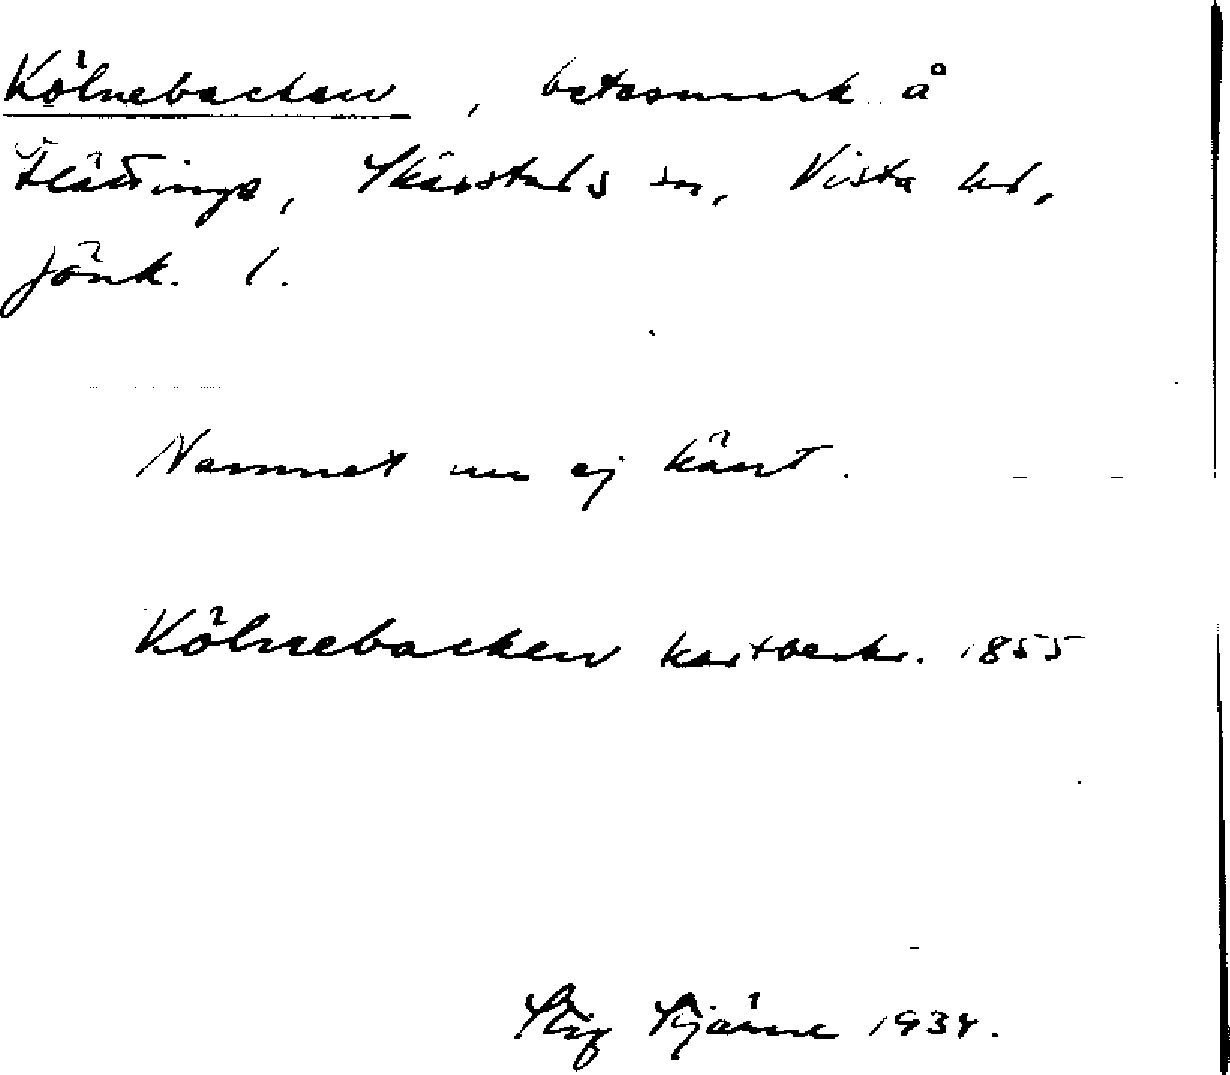 Kölnebacken, betesmark å
Flättinge, Skärstads sn, Vista hd,
Jönk. l.
Namnet nu ej känt.
Kölnebacken kartbeskr. 1855
Stig Stjärne 1934.